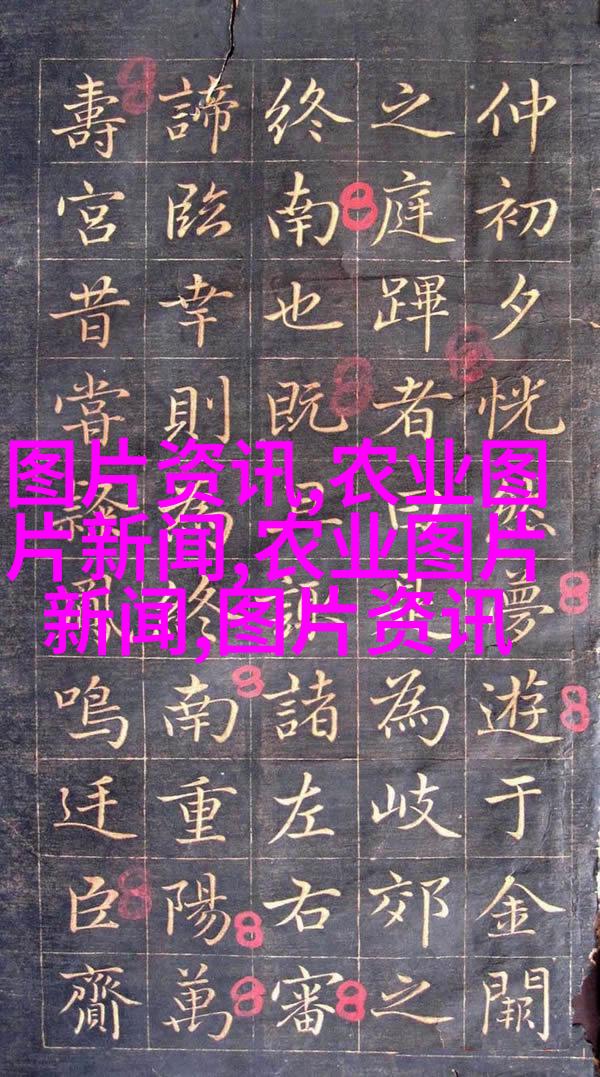 仲初夕恍然夢遊于金闕
之庭蹕者曰為岐郊之
終南也既早諸左右審
諦臨幸則為終南重陽萬
壽宮昔嘗鳴廷臣齎
图片资讯,农业图
片新闻,农业图片
新闻,图片资讯